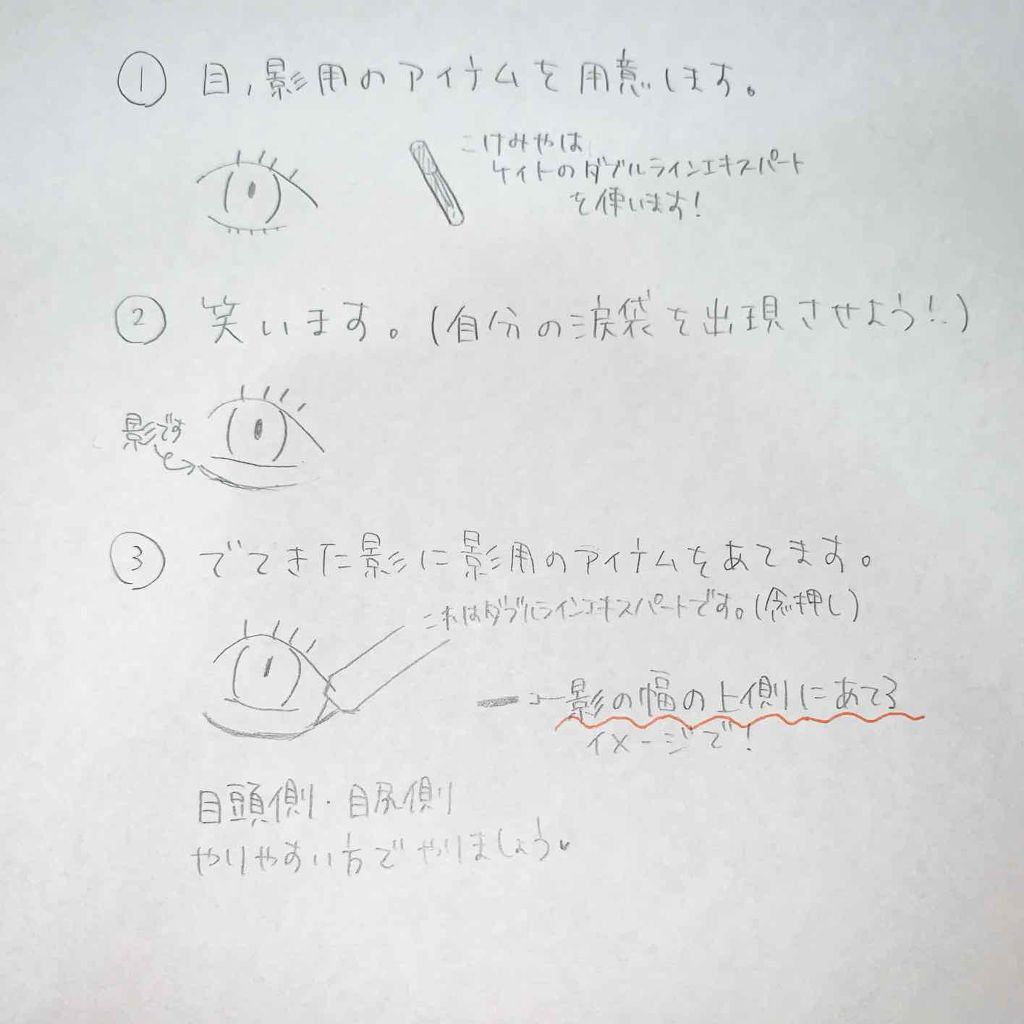 ① 目、影用のアイテムを用意します。
こけみやは
ケイトのダブルラインエキスパート
を使います!
② 笑います。(自分の涙袋を出現させよう!)
影です
③ でてきた影に影用のアイテムをあてます。
これはダブルラインエキスパートです。(念押し)
影の幅の上側にあてる
イメージで!
目頭側・目尻側
やりやすい方でやりましょう。